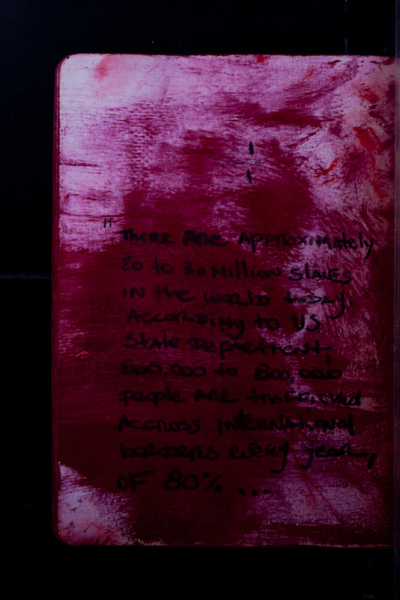 " There are approximately
20 to 30 million slaves
in the world today.
According to US
State Department,
600,000 to 800,000
people are trafficked
accross international
borders every year,
of 80% ...